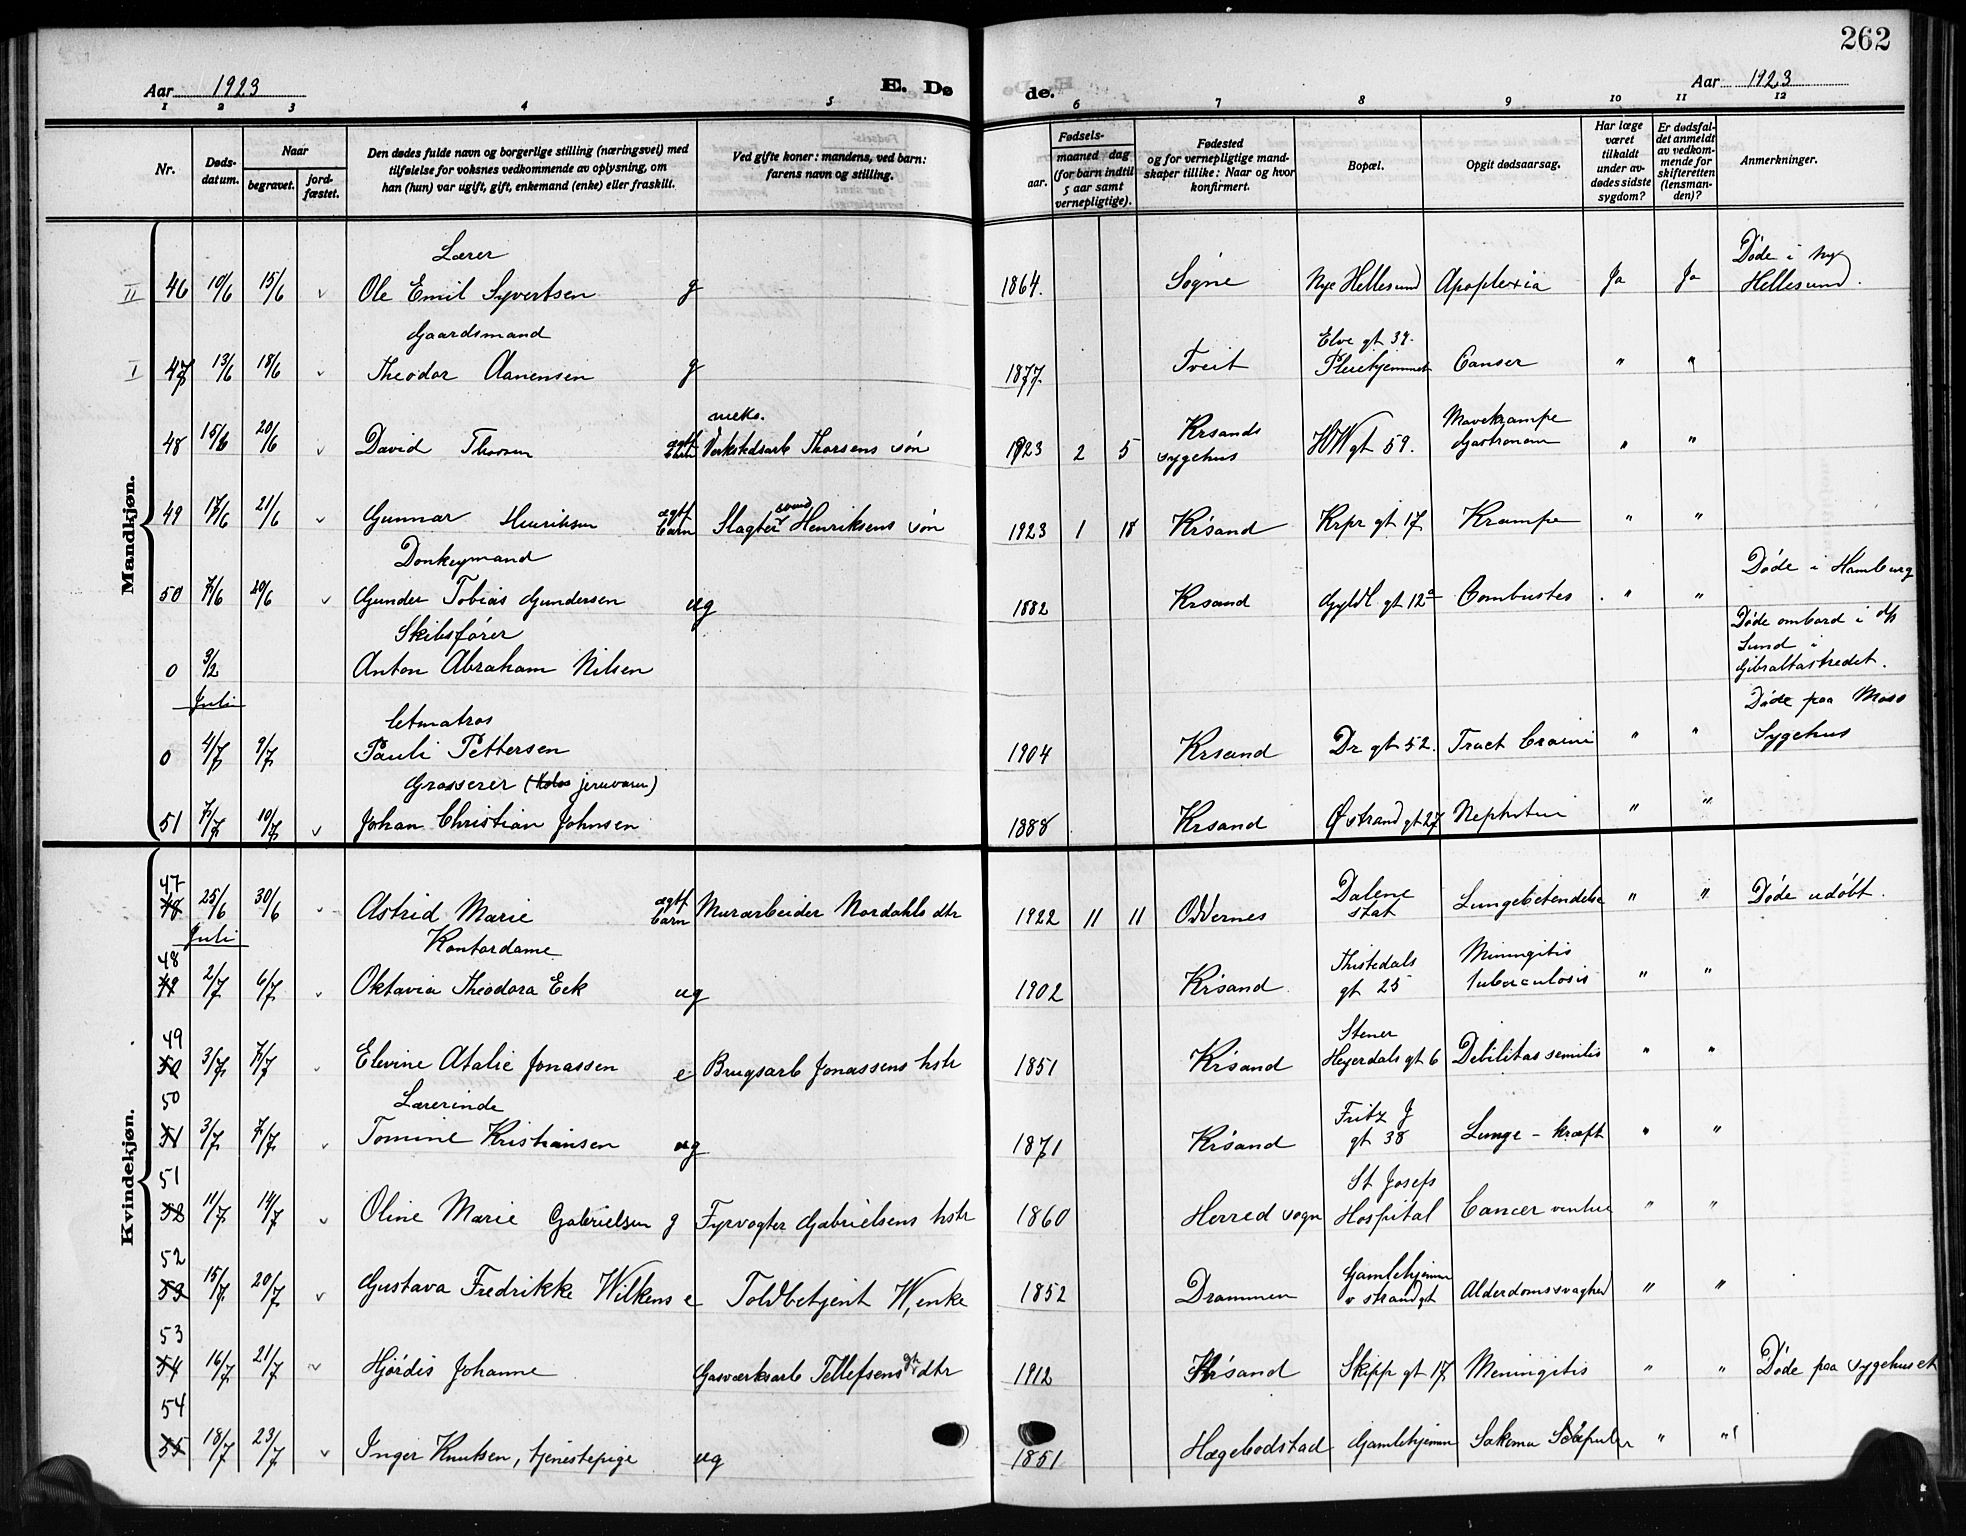 262
Aar 1923 E. Døde. Aar 1923
1 2 3 4 5 6 7 8 9 10 11 12
Nr. Døds-datum. Naar begravet. jord-fæstet. Den dødes fulde navn og borgerlige stilling (næringsvei) med tilføielse for voksnes vedkommende av oplysning, om han (hun) var ugift, gift, enkemand (enke) eller fraskilt. Ved gifte koner: mandens, ved barn: farens navn og stilling. Fødsels- aar. maaned dag (for barn indtil 5 aar samt vernepligtige). Fødested og for vernepligtige mandskaper tillike: Naar og hvor konfirmert. Bopæl. Opgit dødsaarsag. Har læge været tilkaldt under avdødes sidste sygdom? Er dødsfaldet anmeldt av vedkommende for skifteretten (lensmanden)? Anmerkninger.
Mandkjøn.
Lærer
II 46 10/6 15/6 Ole Emil Syvertsen g 1864. Søgne Nye Hellesund Apoplexia Ja Ja Døde i Ny Hellesund.
Gaardsmand
I 47 13/6 18/6 Theodor Aanensen g 1877. Tveit Elve gt 39. Pleiehjemmet Canser " "
48 15/6 20/6 David Thorsen ægtf barn meks. Verkstedsarb Thorsens søn 1923 2 5 Krsands sygehus HW gt 59. Mavekrampe " "
49 17/6 21/6 Gunnar Henriksen ægtf barn Slagtersvend Henriksens søn 1923 1 18 Kr'sand Krpr gt 17 Krampe " "
Donkeymand
50 7/6 20/6 Gunder Tobias Gundersen ug 1882 Krsand Gyldl. gt 12a Combustes " " Døde i Hamburg
Skibsfører
0 3/2 Anton Abraham Nilsen Døde ombord i d/s Lund i Gibraltastredet.
Juli
letmatros
0 4/7 9/7 Pauli Pettersen 1904 Krsand Dr gt 52. Fract Cranii " " Døde paa Moss Sygehus
Grosserer (jernvarer)
51 7/7 10/7 Johan Christian Johnsen 1888 Krsand Ø strand gt 27 " "
Kvindekjøn.
47 48 25/6 30/6 Astrid Marie ægtf barn Murarbeider Nordahls dtr 1922 11 11 Oddernes Dalene stat Lungebetendelse " " Døde udøbt.
Juli
Kontordame
48 49 2/7 6/7 Oktavia Theodora Eek ug 1902 Kr'sand Thistedals gt 25 Miningitis tuberculosis " "
49 50 3/7 7/7 Elevine Atalie Jonassen e Brugsarb Jonassens hstr 1851 Kr'sand Stener Heyerdals gt 6 Debilitas semilis " "
Lærerinde
50 51 3/7 7/7 Tomine Kristiansen ug 1871 Kr'sand Fritz J gt 38 Lunge - kræft " "
51 52 11/7 14/7 Oline Marie Gabrielsen g Fyrvogter Gabrielsens hstr 1860 Herred sogn St Josefs Hospital Cancer " "
52 53 15/7 20/7 Gustava Fredrikke Wilkens e Toldbetjent W, enke 1852 Drammen Gamlehjem v strandgt Alderdomssvaghed " "
53 54 16/7 21/7 Hjørdis Johanne Gasværksarb Tellefsens dtr 1912 Kr'sand Skipp gt 17 Meningitis " " Døde paa sygehuset
54 55 18/7 23/7 Inger Knutsen, tjenestepige ug 1851 Hægebostad Gamlehjem " "